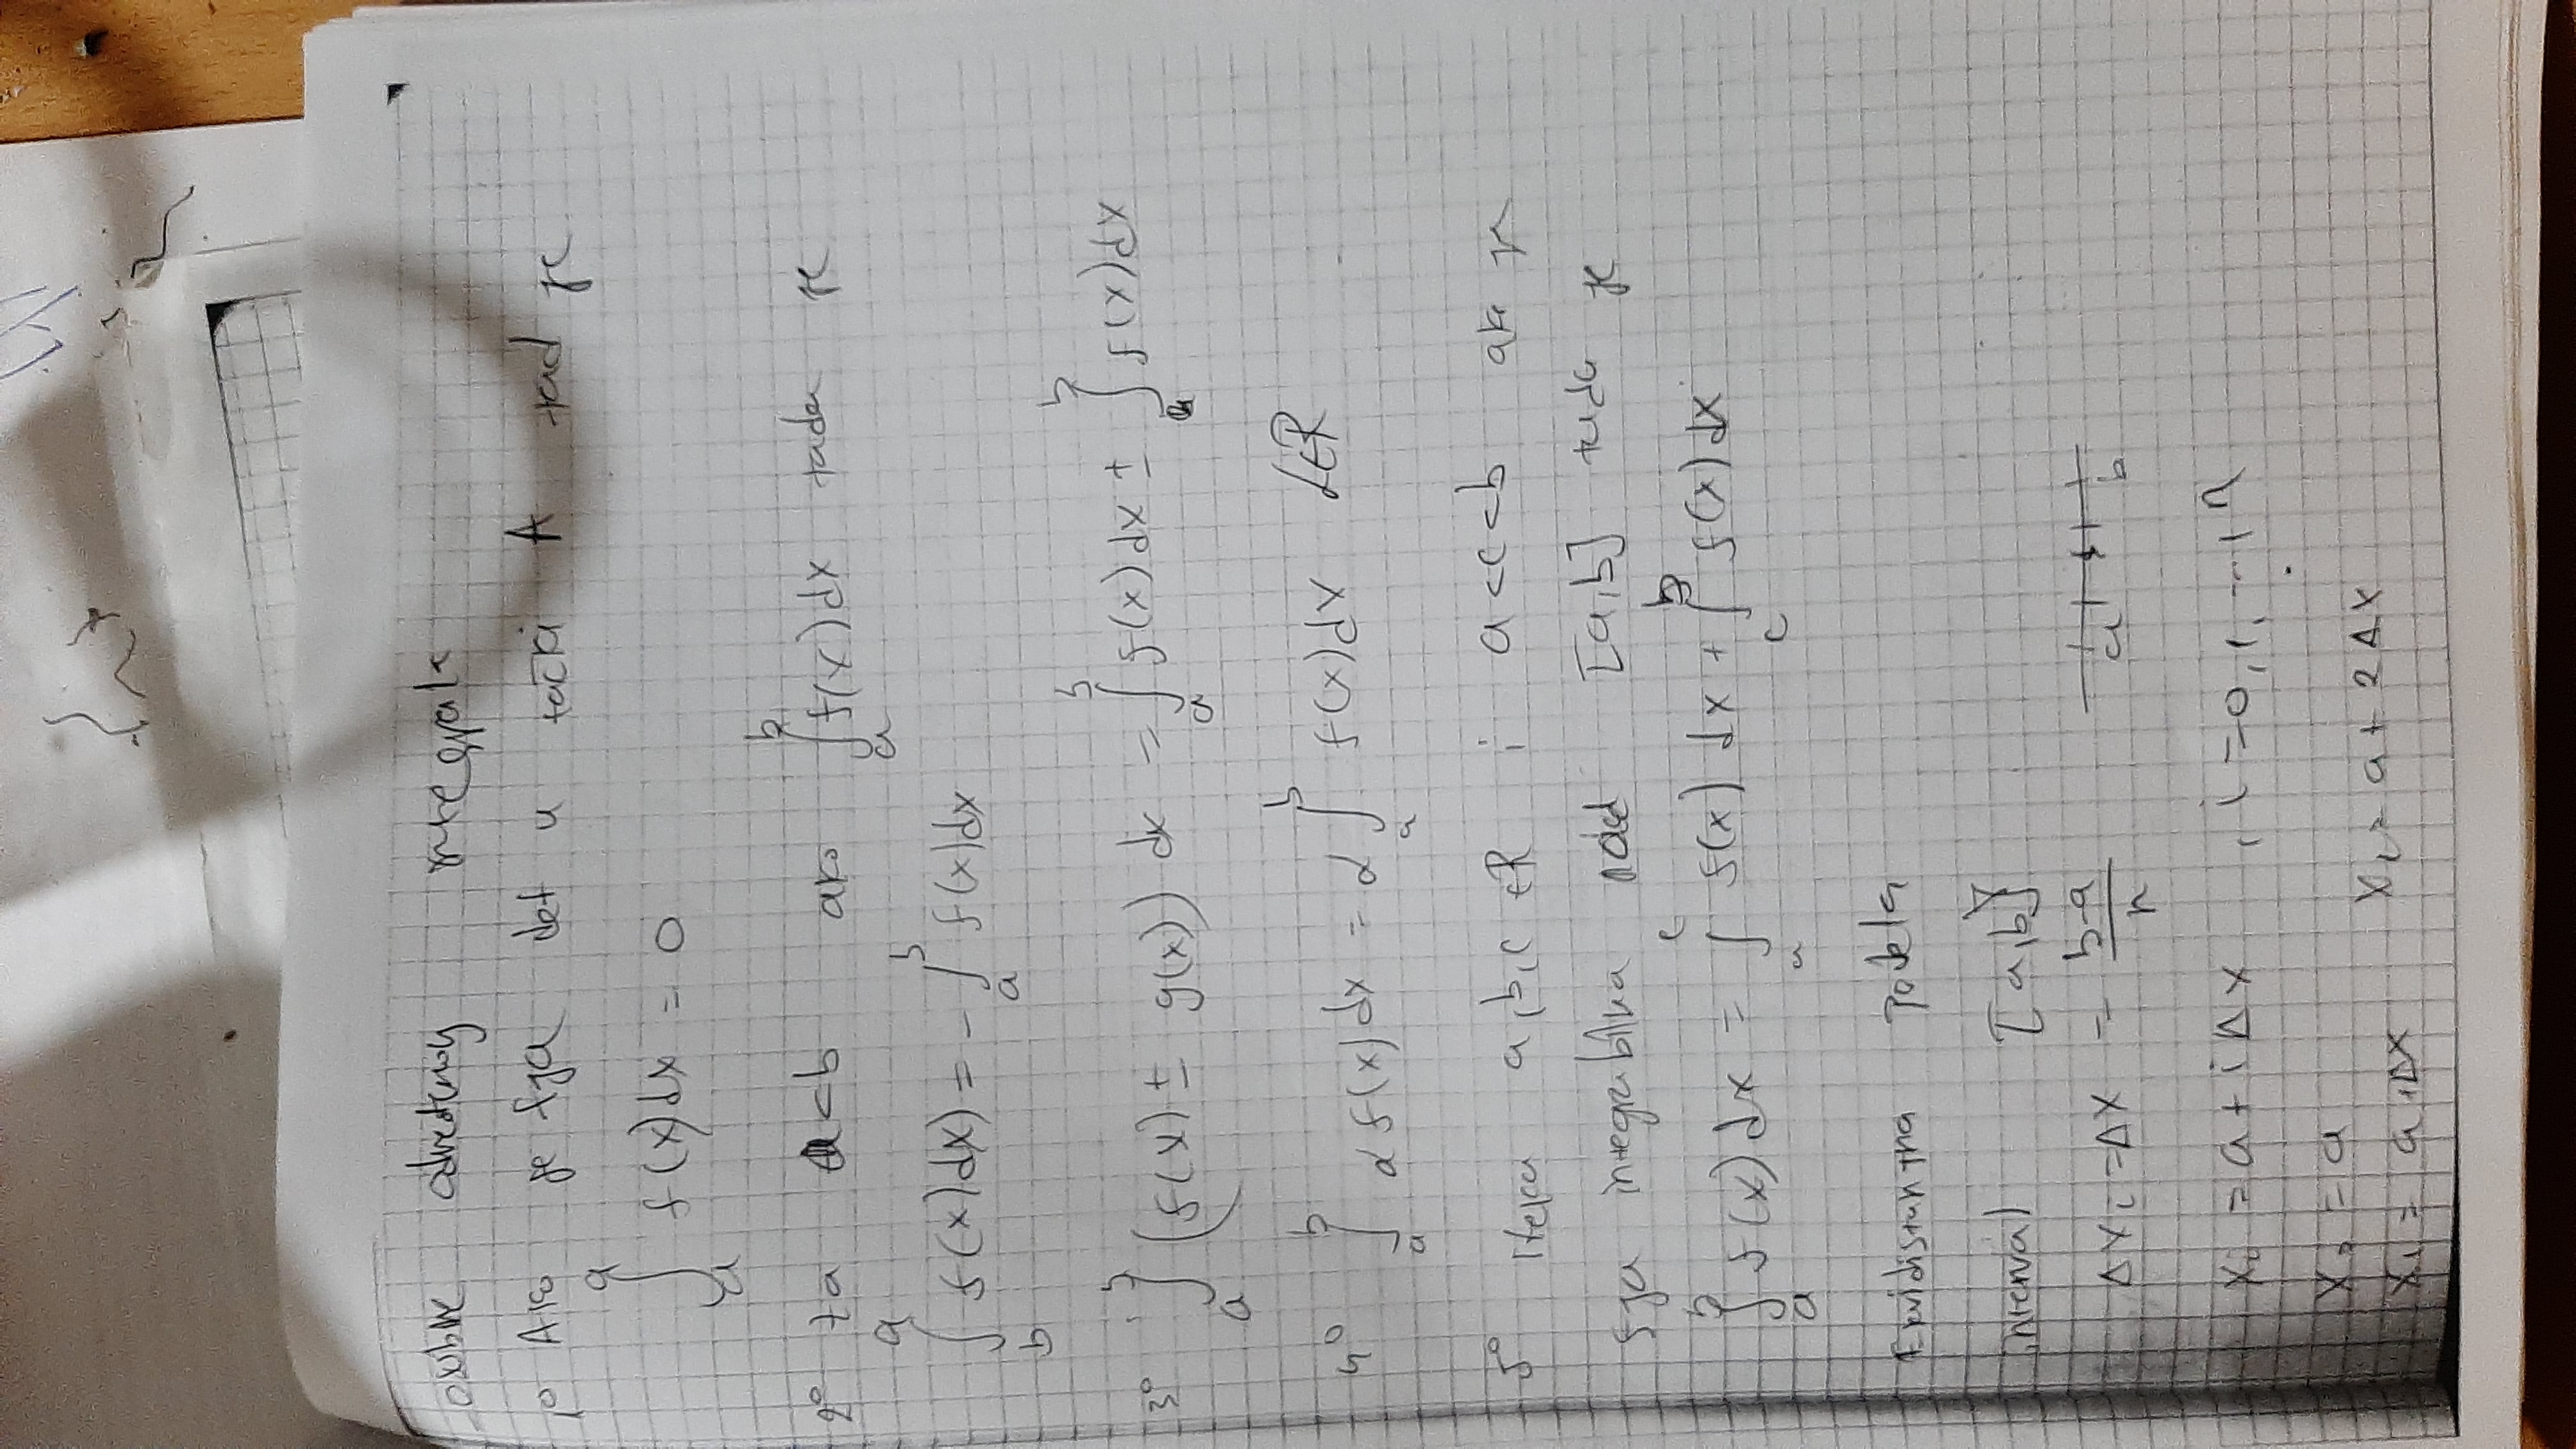 osobine određenog integrala
1° Ako je fja def u tački A tad je
∫_a^a f(x)dx = 0
2° za a<b ako ∫_a^b f(x)dx tada je
∫_b^a f(x)dx) = - ∫_a^b f(x)dx
3° ∫_a^b (f(x) ± g(x)) dx = ∫_a^b f(x)dx ± ∫_a^b f(x)dx
4° ∫_a^b α f(x)dx = α ∫_a^b f(x)dx α∈R
5° Neka a,b,c ∈R i a<c<b ako je
fja integrabilna nad [a,b] tada je
∫_a^b f(x)dx = ∫_a^c f(x) dx + ∫_c^b f(x)dx
Ekvidistantna podela
interval [a,b]
Δx_i = Δx = (b-a)/n
a b
x_i = a + iΔx , i=0,1,...,n
x_0 = a
x_1 = a+Δx x_2 = a + 2Δx